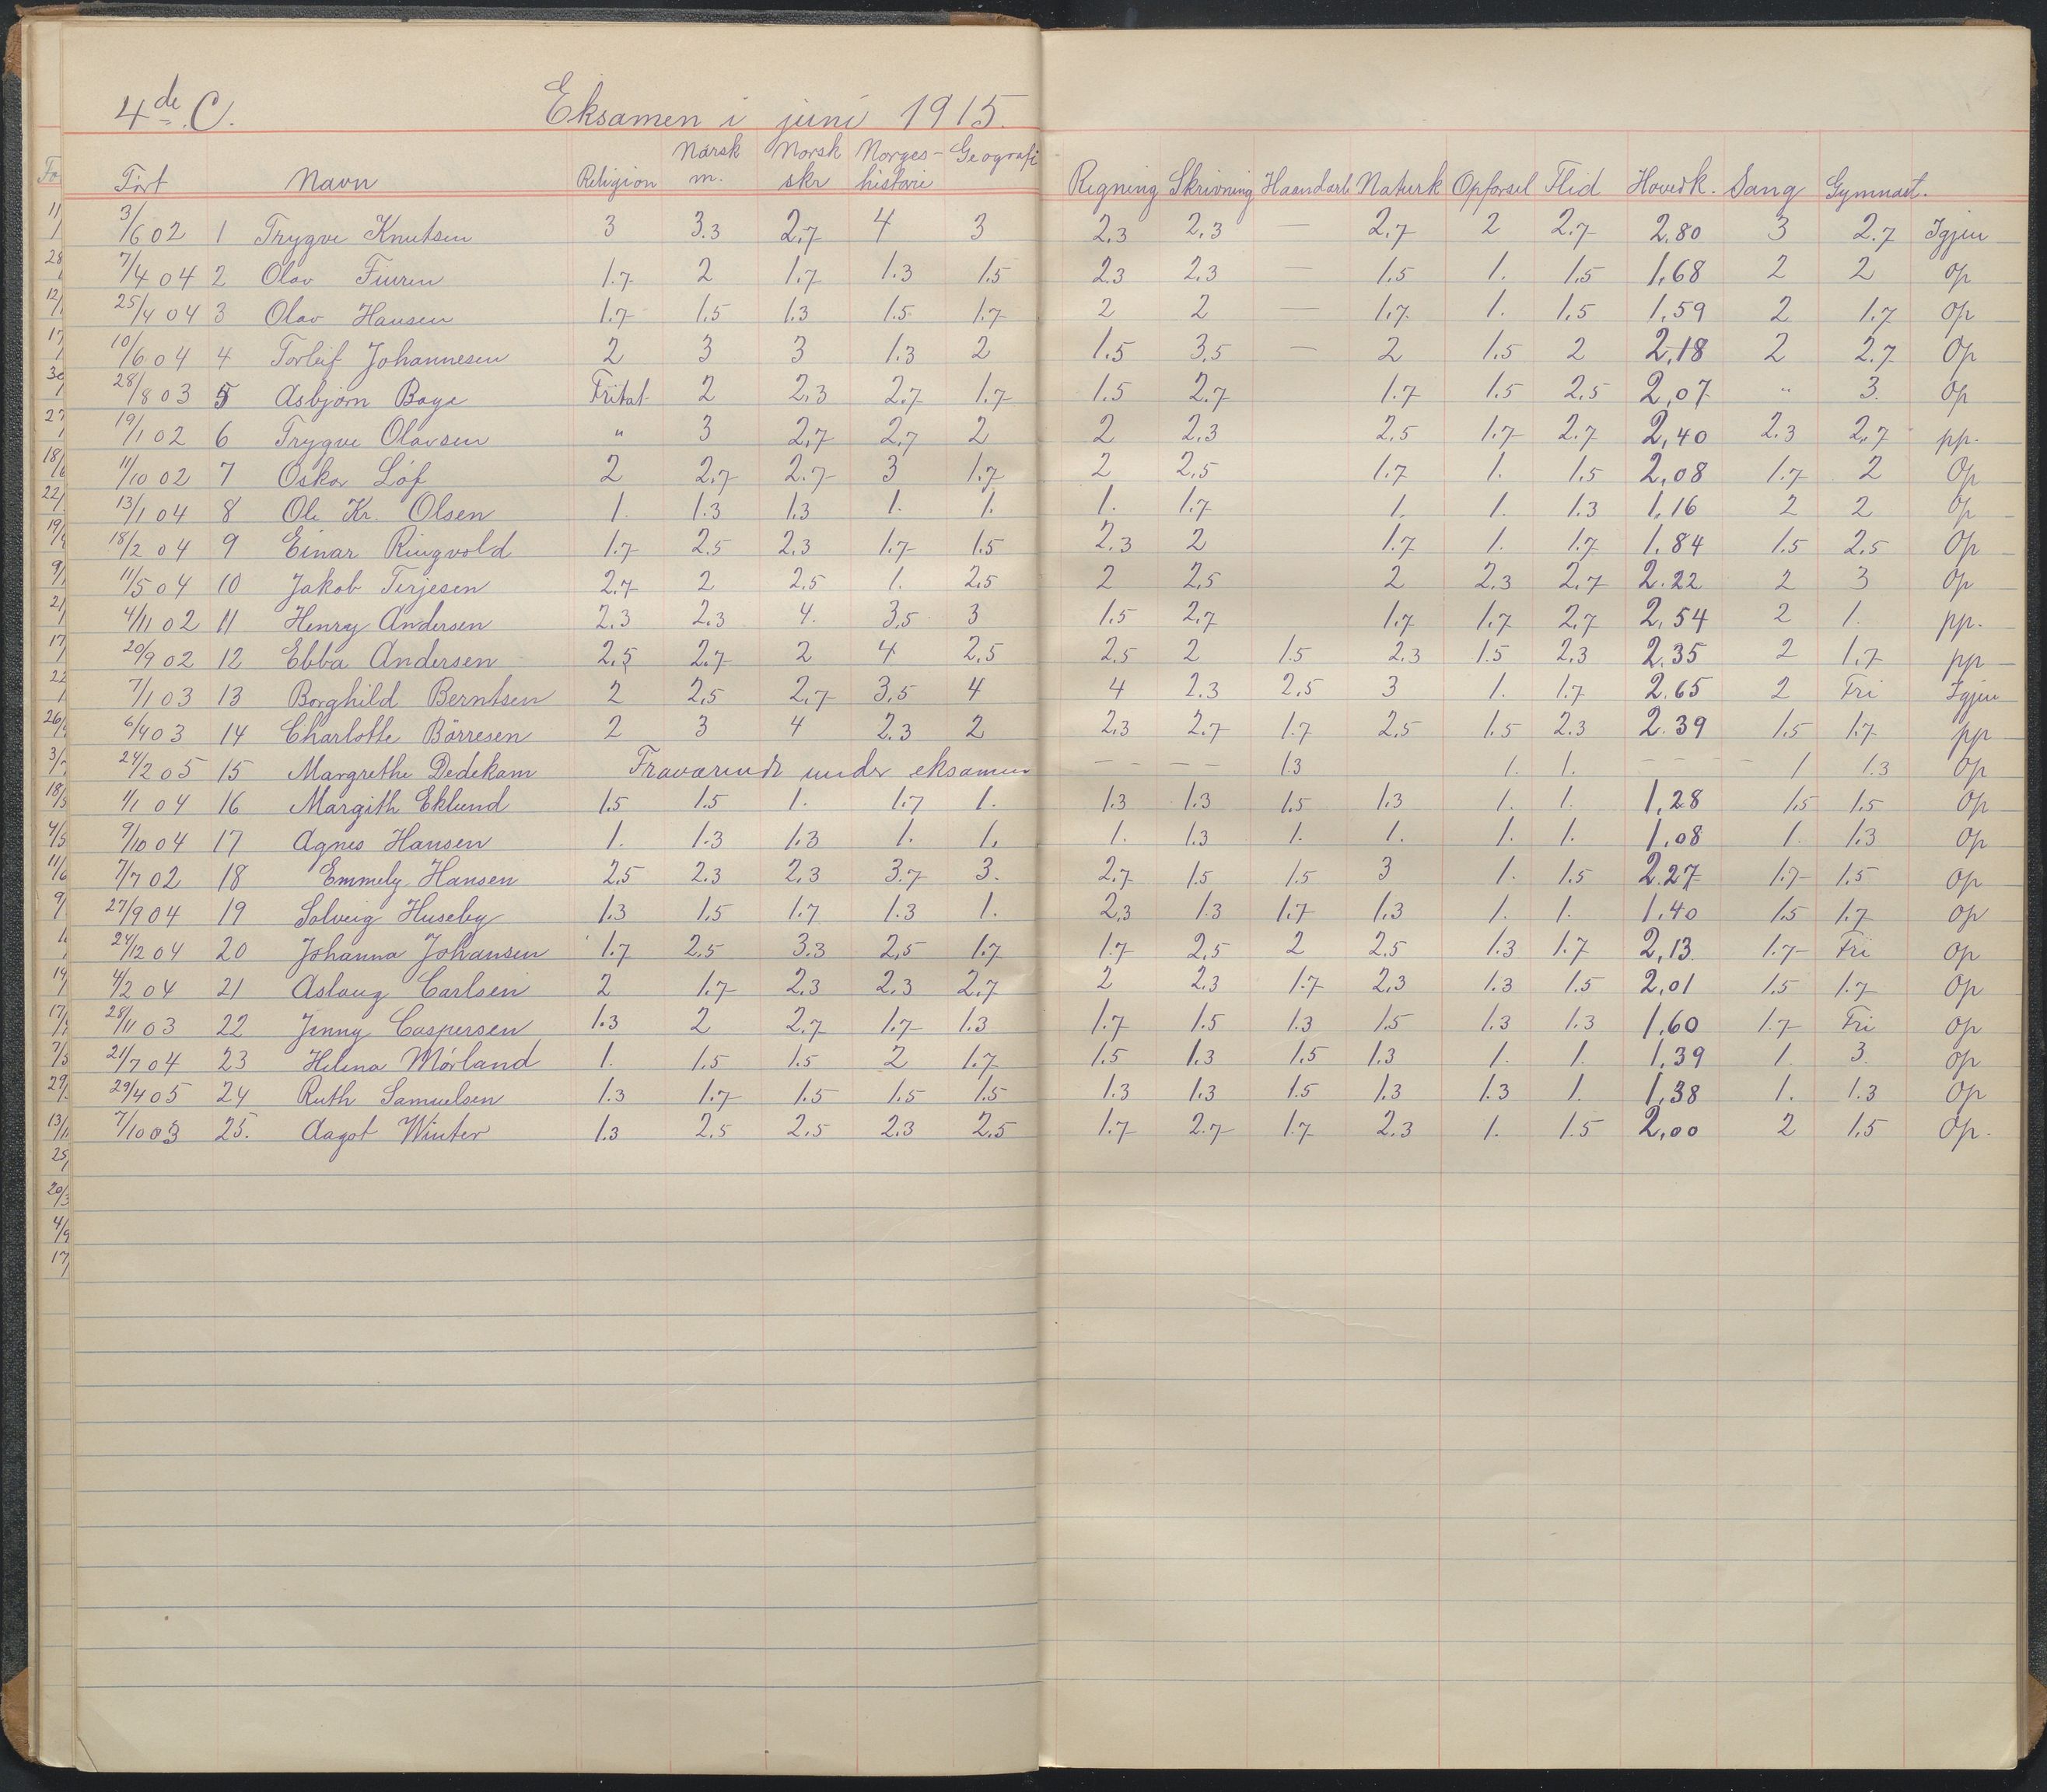 4de C. Eksamen i juni 1915.
Født Navn Religion Norsk m. Norsk skr Norges-historie Geografi Regning Skrivning Haandarb Naturk Opførsel Flid Hovedk. Sang Gymnast.
3/6 02 1 Trygve Knutsen 3 3.3 2,7 4 3 2,3 2,3 — 2,7 2 2,7 2,80 3 2.7 Igjen
7/4 04 2 Olav Furen 1.7 2 1.7 1.3 1.5 2.3 2.3 — 1.5 1. 1,5 1,68 2 2 Op
25/4 04 3 Olav Hansen 1.7 1.5 1.3 1.5 1.7 2 2 — 1.7 1. 1,5 1,59 2 1.7 Op
10/6 04 4 Torleif Johannesen 2 3 3 1.3 2 1.5 3,5 — 2 1.5 2 2,18 2 2.7 Op
28/8 03 5 Asbjørn Boye Fritat 2 2,3 2,7 1.7 1.5 2.7 1.7 1.5 2.5 2,07 " 3. Op
19/1 02 6 Trygve Olavsen " 3 2,7 2,7 2 2 2.3 2.5 1.7 2.7 2,40 2.3 2,7 pp.
11/10 02 7 Oskar Löf 2 2,7 2.7 3 1.7 2 2,5 1.7 1. 1.5 2,08 1.7 2 Op
13/1 04 8 Ole Kr. Olsen 1. 1.3 1.3 1. 1. 1. 1.7 1. 1. 1.3 1,16 2 2 Op
18/2 04 9 Einar Ringvold 1.7 2.5 2.3 1.7 1.5 2.3 2 1.7 1. 1.7 1.84 1.5 2.5 Op
11/5 04 10 Jakob Terjesen 2.7 2 2.5 1. 2,5 2 2,5 2 2.3 2.7 2.22 2 3 Op
4/11 02 11 Henry Andersen 2.3 2.3 4. 3,5 3 1.5 2,7 1.7 1.7 2,7 2,54 2 1. pp.
20/9 02 12 Ebba Andersen 2,5 2.7 2 4 2,5 2.5 2 1.5 2.3 1.5 2.3 2.35 2 1,7 pp
7/1 03 13 Borghild Berntsen 2 2,5 2,7 3,5 4 4 2.3 2,5 3 1. 1.7 2.65 2 Fri Igjen
6/4 03 14 Charlotte Börresen 2 3 4 2.3 2 2.3 2.7 1.7 2,5 1.5 2.3 2.39 1.5 1.7 pp
24/2 05 15 Margrethe Dedekam Fraværende under eksamen — — — — 1.3 1. 1. — — — — 1 1.3 Op
1/1 04 16 Margith Eklund 1.5 1.5 1. 1.7 1. 1.3 1.3 1.5 1.3 1. 1. 1,28 1.5 1.5 Op
9/10 04 17 Agnes Hansen 1. 1.3 1.3 1. 1. 1. 1.3 1. 1. 1. 1. 1,08 1. 1.3 Op
7/7 02 18 Emmely Hansen 2.5 2.3 2,3 3.7 3. 2.7 1.5 1.5 3 1. 1.5 2.27 1.7 1.5 Op
27/9 04 19 Solveig Huseby 1.3 1.5 1.7 1.3 1. 2,3 1.3 1.7 1,3 1. 1. 1.40 1.5 1.7 Op
24/12 04 20 Johanna Johansen 1.7 2,5 3.3 2,5 1.7 1.7 2,5 2 2.5 1.3 1.7 2,13 1.7 Fri Op
4/2 04 21 Aslaug Carlsen 2 1.7 2.3 2.3 2.7 2 2,3 1.7 2,3 1.3 1.5 2,01 1.5 1.7 Op
28/11 03 22 Jenny Caspersen 1.3 2 2.7 1.7 1.3 1.7 1.5 1.3 1.5 1.3 1.3 1,60 1.7 Fri Op
21/7 04 23 Helena Mörland 1. 1.5 1.5 2 1.7 1.5 1.3 1.5 1.3 1. 1. 1,39 1. 3. Op
29/4 05 24 Ruth Samuelsen 1.3 1.7 1.5 1.5 1.5 1.3 1.3 1.5 1.3 1.3 1. 1,38 1. 1.3 Op
7/10 03 25. Aagot Winter 1.3 2,5 2.5 2.3 2.5 1.7 2.7 1.7 2.3 1. 1.5 2,00 2 1.5 Op.